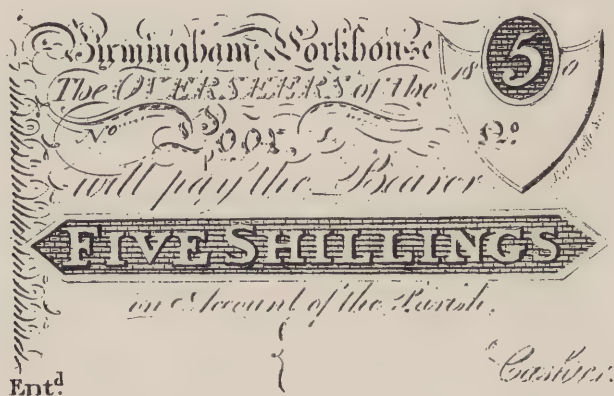 Birmingham Workhouse
18 5 0
The OVERSEERS of the
No Poor, No
will pay the Bearer
FIVE SHILLINGS
on Account of the Parish.
Entd. Cashier.